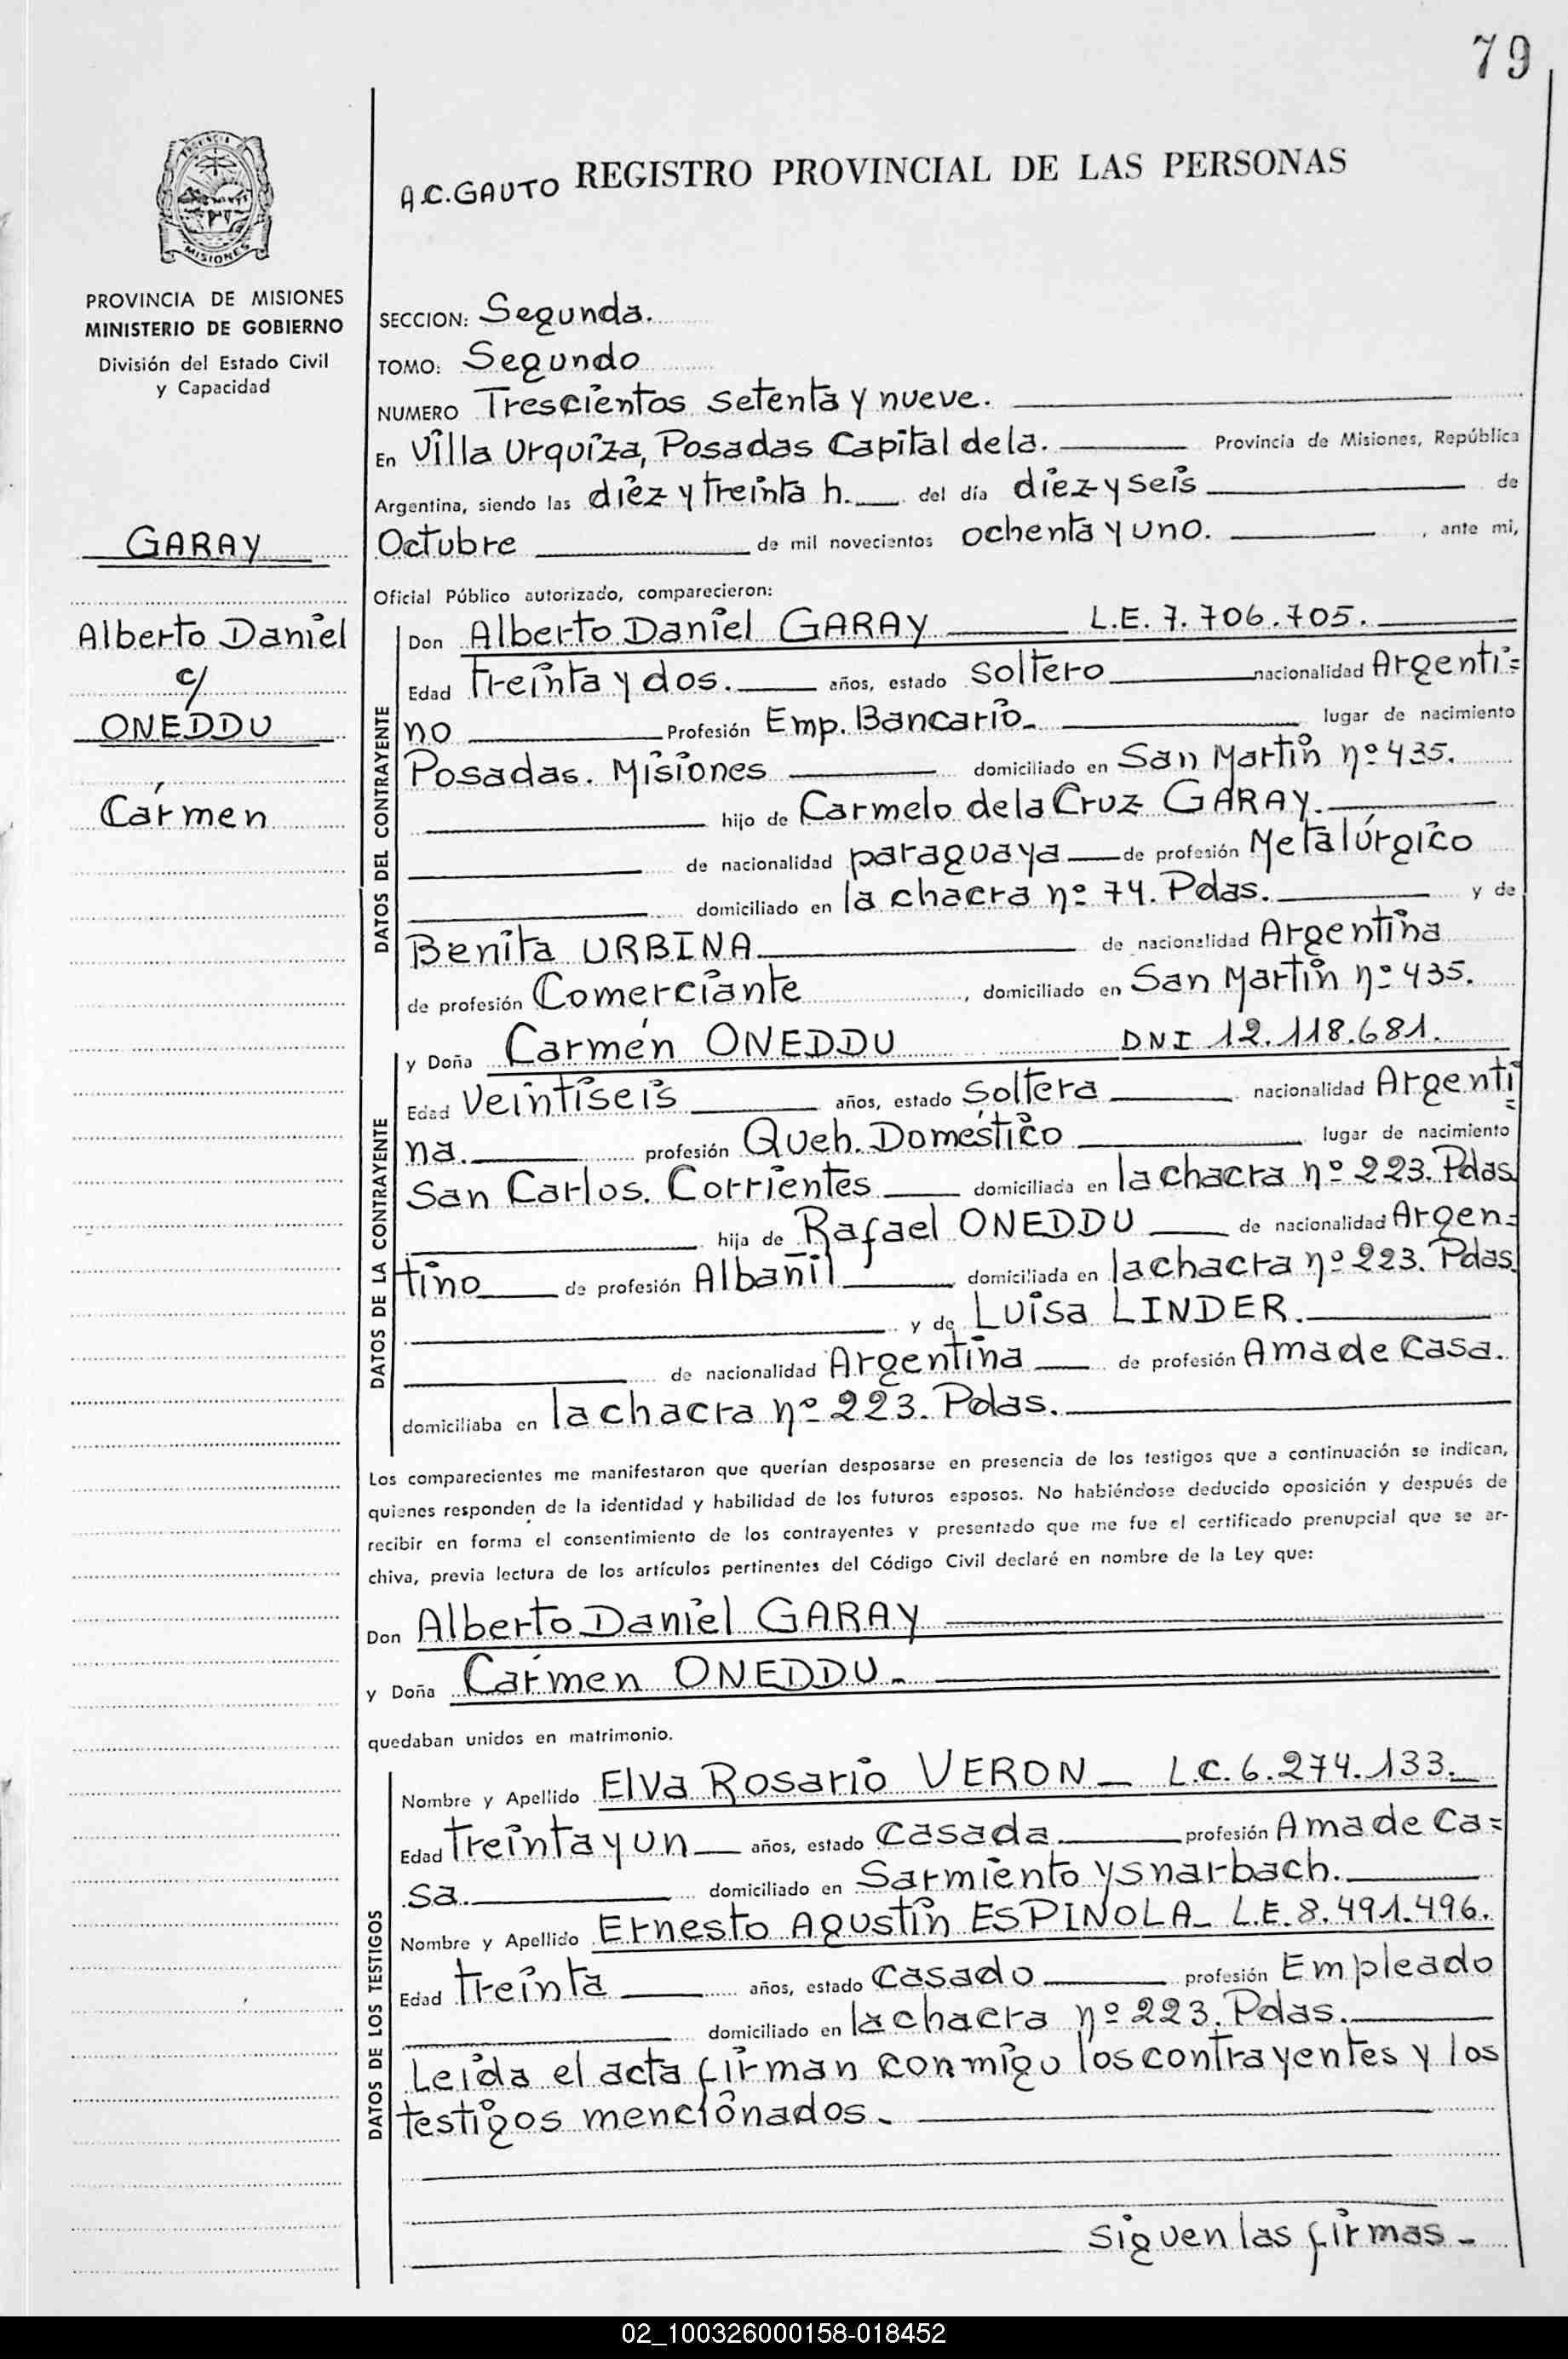 79
PROVINCIA
MISIONES
A.C.GAUTO REGISTRO PROVINCIAL DE LAS PERSONAS
PROVINCIA DE MISIONES
MINISTERIO DE GOBIERNO
División del Estado Civil
y Capacidad
GARAY
Alberto Daniel
c/
ONEDDU
Cármen
SECCION: Segunda.
TOMO: Segundo
NUMERO Trescientos setenta y nueve.
En Villa Urquiza, Posadas Capital de la. Provincia de Misiones, República
Argentina, siendo las diez y treinta h. del día diez y seis de
Octubre de mil novecientos ochenta y uno. , ante mi,
Oficial Público autorizado, comparecieron:
DATOS DEL CONTRAYENTE
Don Alberto Daniel GARAY L.E. 7.706.705.
Edad treinta y dos. años, estado soltero nacionalidad Argenti=
no Profesión Emp. Bancario. lugar de nacimiento
Posadas. Misiones domiciliado en San Martin nº 435.
hijo de Carmelo de la Cruz GARAY.
de nacionalidad paraguaya de profesión Metalúrgico
domiciliado en la chacra nº 74. Pdas. y de
Benita URBINA de nacionalidad Argentina
de profesión Comerciante , domiciliado en San Martin nº 435.
DATOS DE LA CONTRAYENTE
y Doña Carmen ONEDDU DNI 12.118.681.
Edad Veintiseis años, estado Soltera nacionalidad Argenti
=
na. profesión Queh. Doméstico lugar de nacimiento
San Carlos. Corrientes domiciliada en la chacra nº 223. Pdas.
hija de Rafael ONEDDU de nacionalidad Argen=
tino de profesión Albañil domiciliada en la chacra nº 223. Pdas.
y de Luisa LINDER.
de nacionalidad Argentina de profesión Ama de Casa.
domiciliaba en la chacra nº 223. Pdas.
Los comparecientes me manifestaron que querían desposarse en presencia de los testigos que a continuación se indican,
quienes responden de la identidad y habilidad de los futuros esposos. No habiéndose deducido oposición y después de
recibir en forma el consentimiento de los contrayentes y presentado que me fue el certificado prenupcial que se ar-
chiva, previa lectura de los artículos pertinentes del Código Civil declaré en nombre de la Ley que:
Don Alberto Daniel GARAY
y Doña Cármen ONEDDU.
quedaban unidos en matrimonio.
DATOS DE LOS TESTIGOS
Nombre y Apellido Elva Rosario VERON L.C. 6.274.133.
Edad treinta y un años, estado Casada profesión Ama de Ca=
sa. domiciliado en Sarmiento y Snarbach.
Nombre y Apellido Ernesto Agustin ESPINOLA L.E. 8.491.496.
Edad treinta años, estado Casado profesión Empleado
domiciliado en la chacra nº 223. Pdas.
Leida el acta firman conmigo los contrayentes y los
testigos mencionados.
Siguen las firmas.
02_100326000158-018452